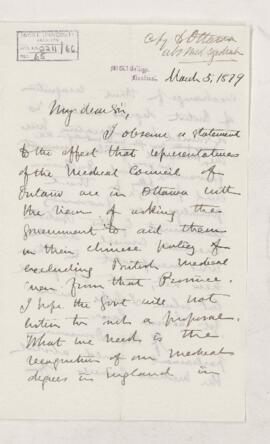 Copy to Ottawa
McGill College,
Montreal
March 5, 1879
My dear Sir,
I observe a statement
to the effect that representatives
of the Medical Council of
Ontario are in Ottawa with
the view of asking the
Government to aid them
in their chinese policy of
excluding British medical
men from that Province.
I hope the Govt will not
listen to such a proposal.
What we need is the
recognition of our medical
degrees in England in